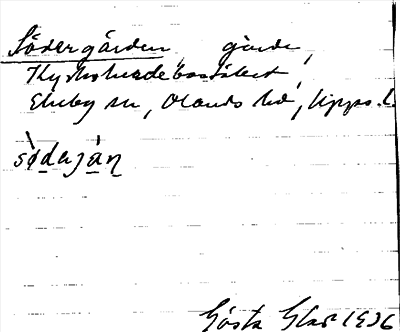 Södergården, gårde,
Kyrkoherdebostället,
Ekeby sn, Olands hd, Upps. l.
södaján
Gösta Glas 1936